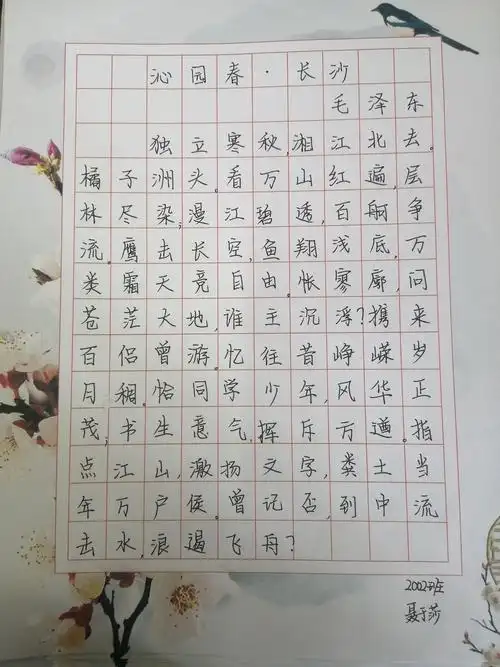 沁园春·长沙
毛泽东
独立寒秋,湘江北去。
橘子洲头。看万山红遍,层
林尽染,漫江碧透,百舸争
流。鹰击长空,鱼翔浅底,万
类霜天竞自由。怅寥廓,问
苍茫大地,谁主沉浮?携来
百侣曾游。忆往昔峥嵘岁
月稠。恰同学少年,风华正
茂,书生意气,挥斥方遒。指
点江山,激扬文字,粪土当
年万户侯。曾记否,到中流
击水,浪遏飞舟?
2002班
聂于莎